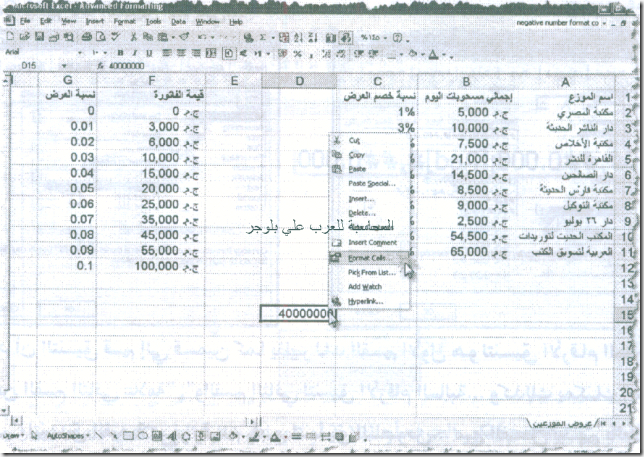 Microsoft Excel - Advanced Formatting
File Edit View Insert Format Tools Data Window Help
negative number format co
Arial
D15
40000000
G F E D C B A
نسبة العرض قيمة الفاتورة نسبة خصم العرض إجمالي مسحوبات اليوم اسم الموزع 1
0 ج.م 0 1% ج.م 5,000 مكتبة المصري 2
0.01 ج.م 3,000 3% ج.م 10,000 دار الناشر الحديثة 3
0.02 ج.م 6,000 ج.م 7,500 مكتبة الأخلاص 4
0.03 ج.م 10,000 ج.م 21,000 القاهرة للنشر 5
0.04 ج.م 15,000 ج.م 14,500 دار الصالحين 6
0.05 ج.م 20,000 ج.م 8,500 مكتبة فارس الحديثة 7
0.06 ج.م 25,000 ج.م 9,000 مكتبة التوكيل 8
0.07 ج.م 35,000 ج.م 2,500 دار ٢٦ يوليو 9
0.08 ج.م 45,000 ج.م 54,500 المكتب الحديث لتوريدات 10
0.09 ج.م 55,000 ج.م 65,000 العربية لتسويق الكتب 11
0.1 ج.م 100,000 12
13
14
40000000 15
16
17
18
19
20
21
Cut
Copy
Paste
Paste Special...
Insert...
Delete...
المحاسبة للعرب علي بلوجر
Insert Comment
Format Cells...
Pick From List...
Add Watch
Hyperlink...
عروض الموزعين
Draw AutoShapes